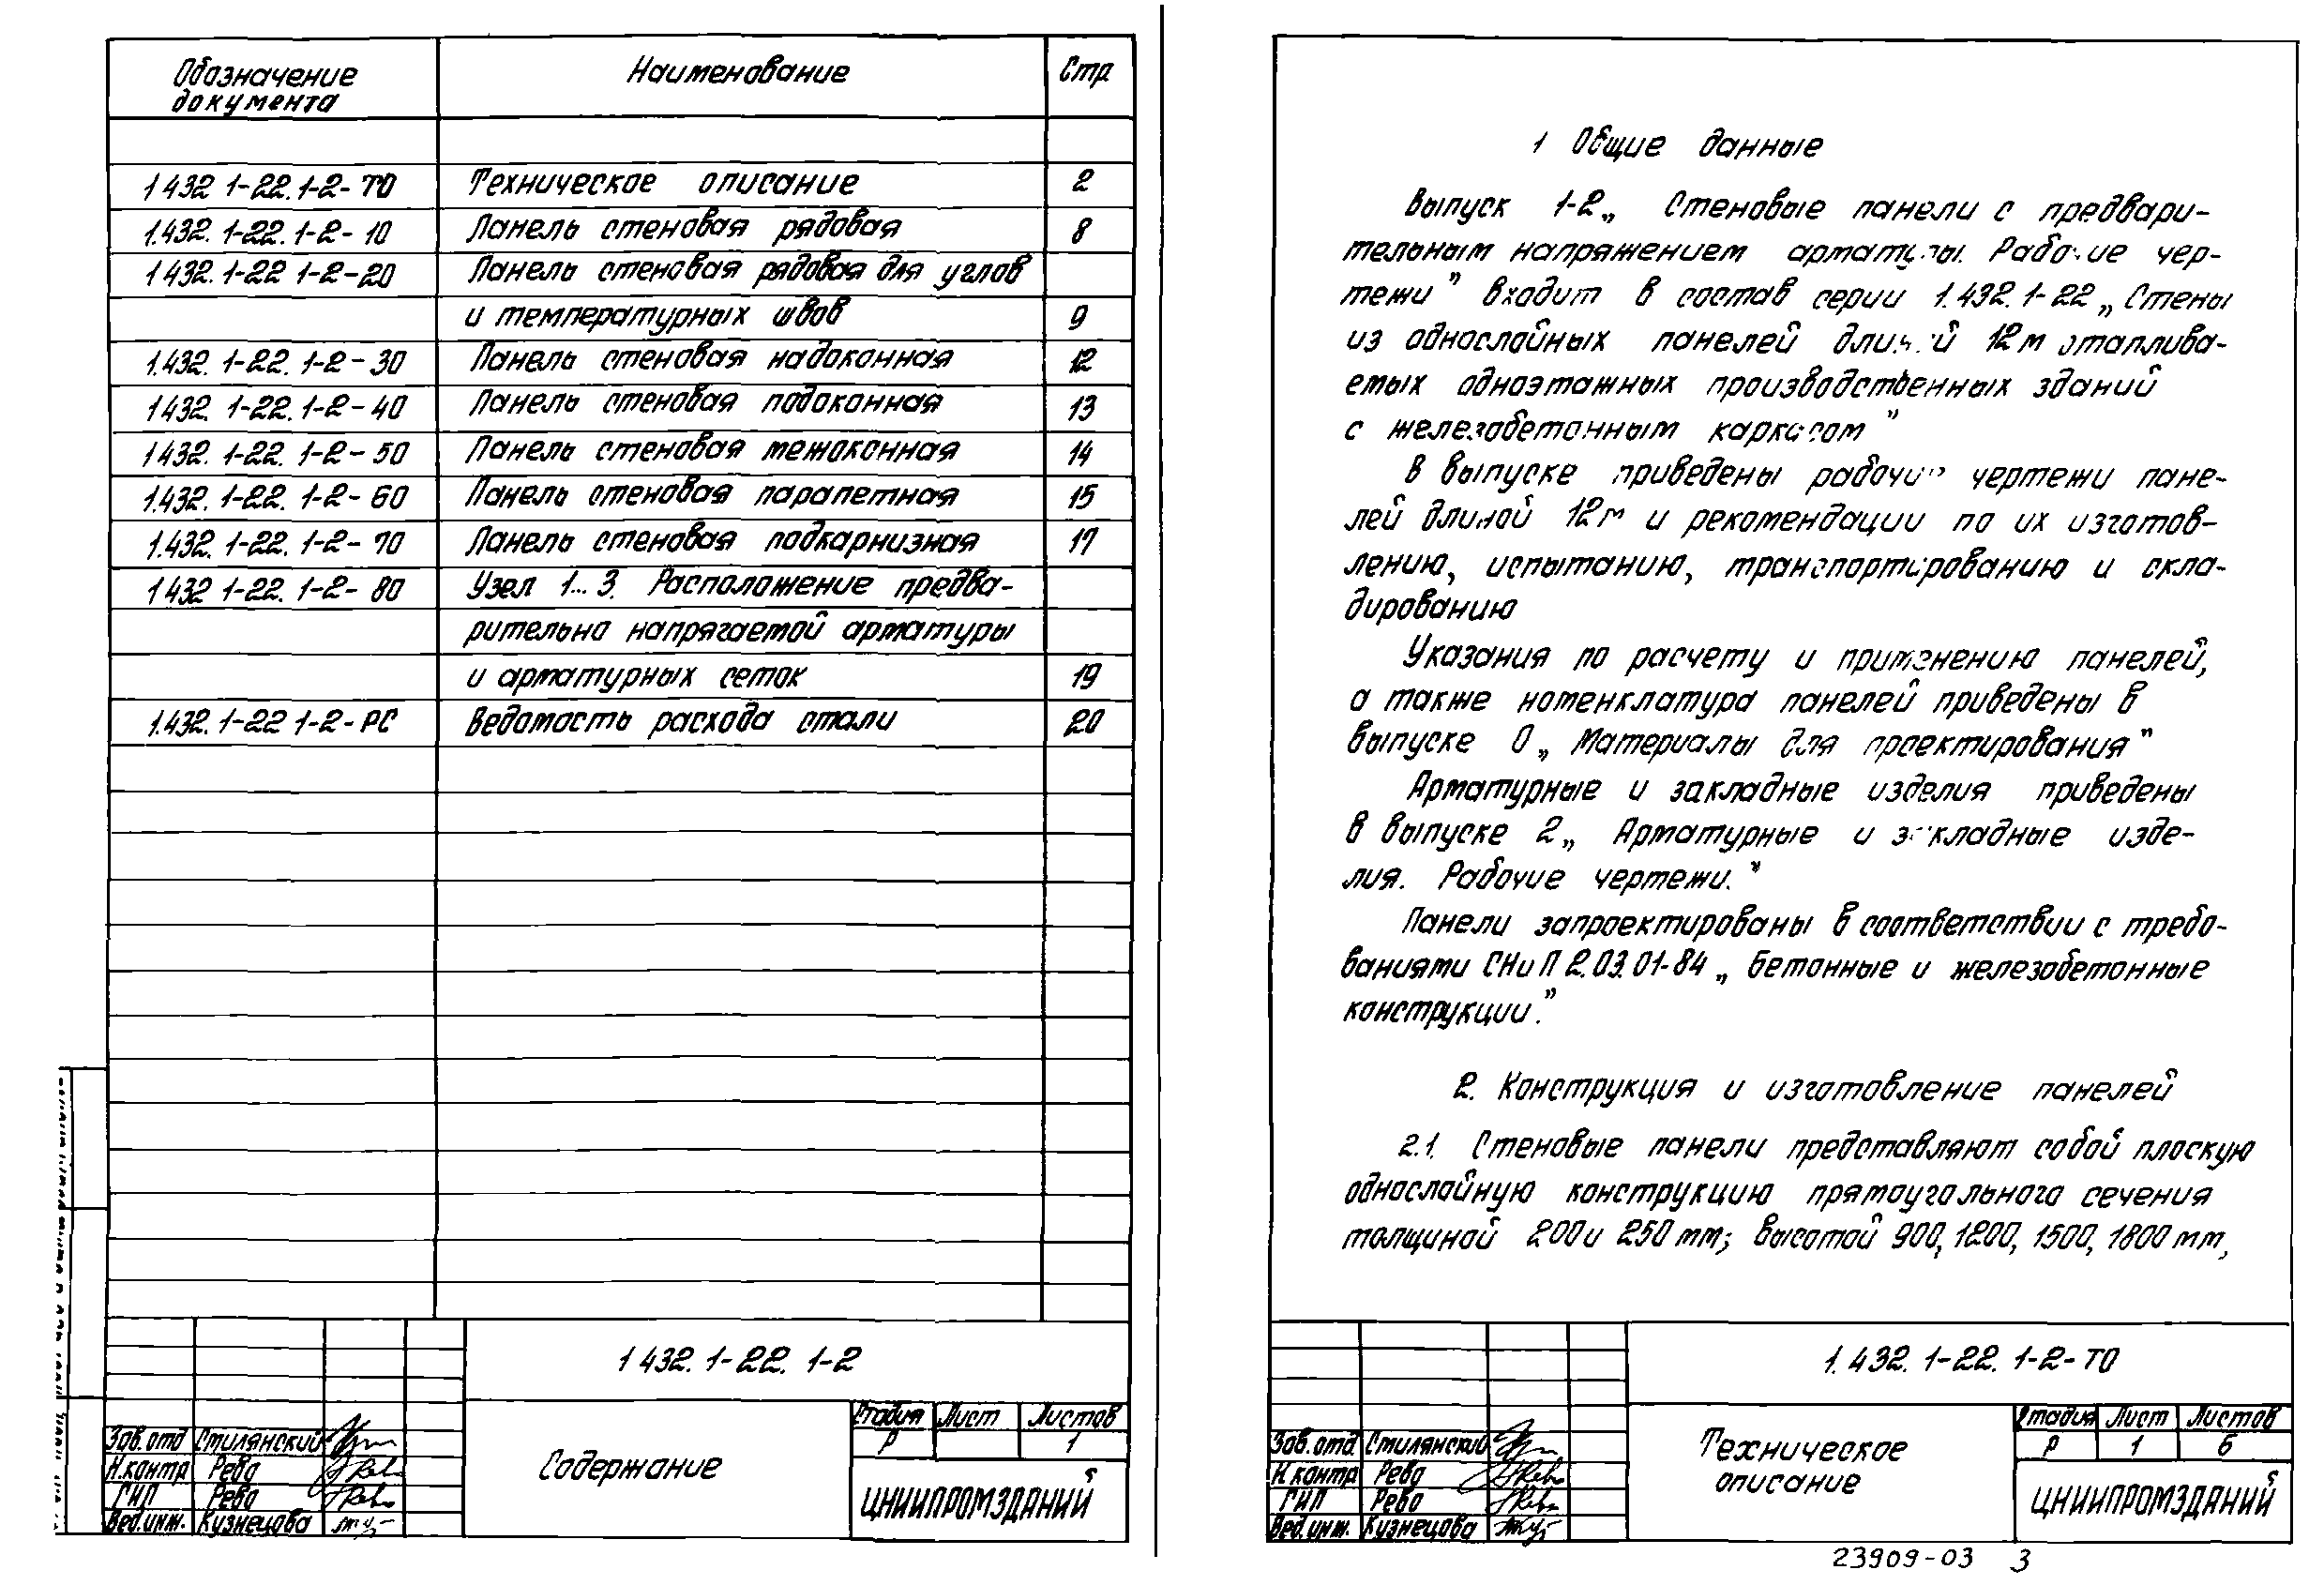 Обозначение документа
Наименование
Стр
1 432 1-22.1-2-ТО Техническое описание 2
1.432. 1-22. 1-2-10 Панель стеновая рядовая 8
1 432. 1-22 1-2-20 Панель стеновая рядовая для углов
и температурных швов 9
1.432. 1-22. 1-2-30 Панель стеновая надоконная 12
1432. 1-22. 1-2-40 Панель стеновая подоконная 13
1432. 1-22. 1-2-50 Панель стеновая межоконная 14
1.432. 1-22. 1-2-60 Панель стеновая парапетная 15
1.432. 1-22. 1-2-70 Панель стеновая подкарнизная 17
1 432 1-22. 1-2-80 Узел 1...3. Расположение предва-
рительно напрягаемой арматуры
и арматурных сеток 19
1.432. 1-22 1-2-РС Ведомость расхода стали 20
1 432. 1-22. 1-2
Содержание
Стадия Лист Листов
Р 1
ЦНИИПРОМЗДАНИЙ
Зав.отд Стилянский
Н.контр Рева
ГИП Рева
Вед.инж. Кузнецова
1 Общие данные
Выпуск 1-2 „ Стеновые панели с предвари-
тельным напряжением арматуры. Рабочие чер-
тежи" входит в состав серии 1.432.1-22 „Стены
из однослойных панелей длиной 12м отаплива-
емых одноэтажных производственных зданий
с железобетонным каркасом"
В выпуске приведены рабочие чертежи пане-
лей длиной 12м и рекомендации по их изготов-
лению, испытанию, транспортированию и скла-
дированию
Указания по расчету и применению панелей,
а также номенклатура панелей приведены в
выпуске 0 „ Материалы для проектирования"
Арматурные и закладные изделия приведены
в выпуске 2 „ Арматурные и закладные изде-
лия. Рабочие чертежи."
Панели запроектированы в соответствии с требо-
ваниями СНиП 2.03.01-84 „ Бетонные и железобетонные
конструкции."
2. Конструкция и изготовление панелей
2.1. Стеновые панели представляют собой плоскую
однослойную конструкцию прямоугольного сечения
толщиной 200 и 250 мм; высотой 900, 1200, 1500, 1800 мм,
1. 432. 1-22. 1-2-ТО
Техническое
описание
Стадия Лист Листов
Р 1 6
ЦНИИПРОМЗДАНИЙ
Зав.отд. Стилянский
Н контр Рева
ГИП Рева
Вед.инж. Кузнецова
23909-03 3